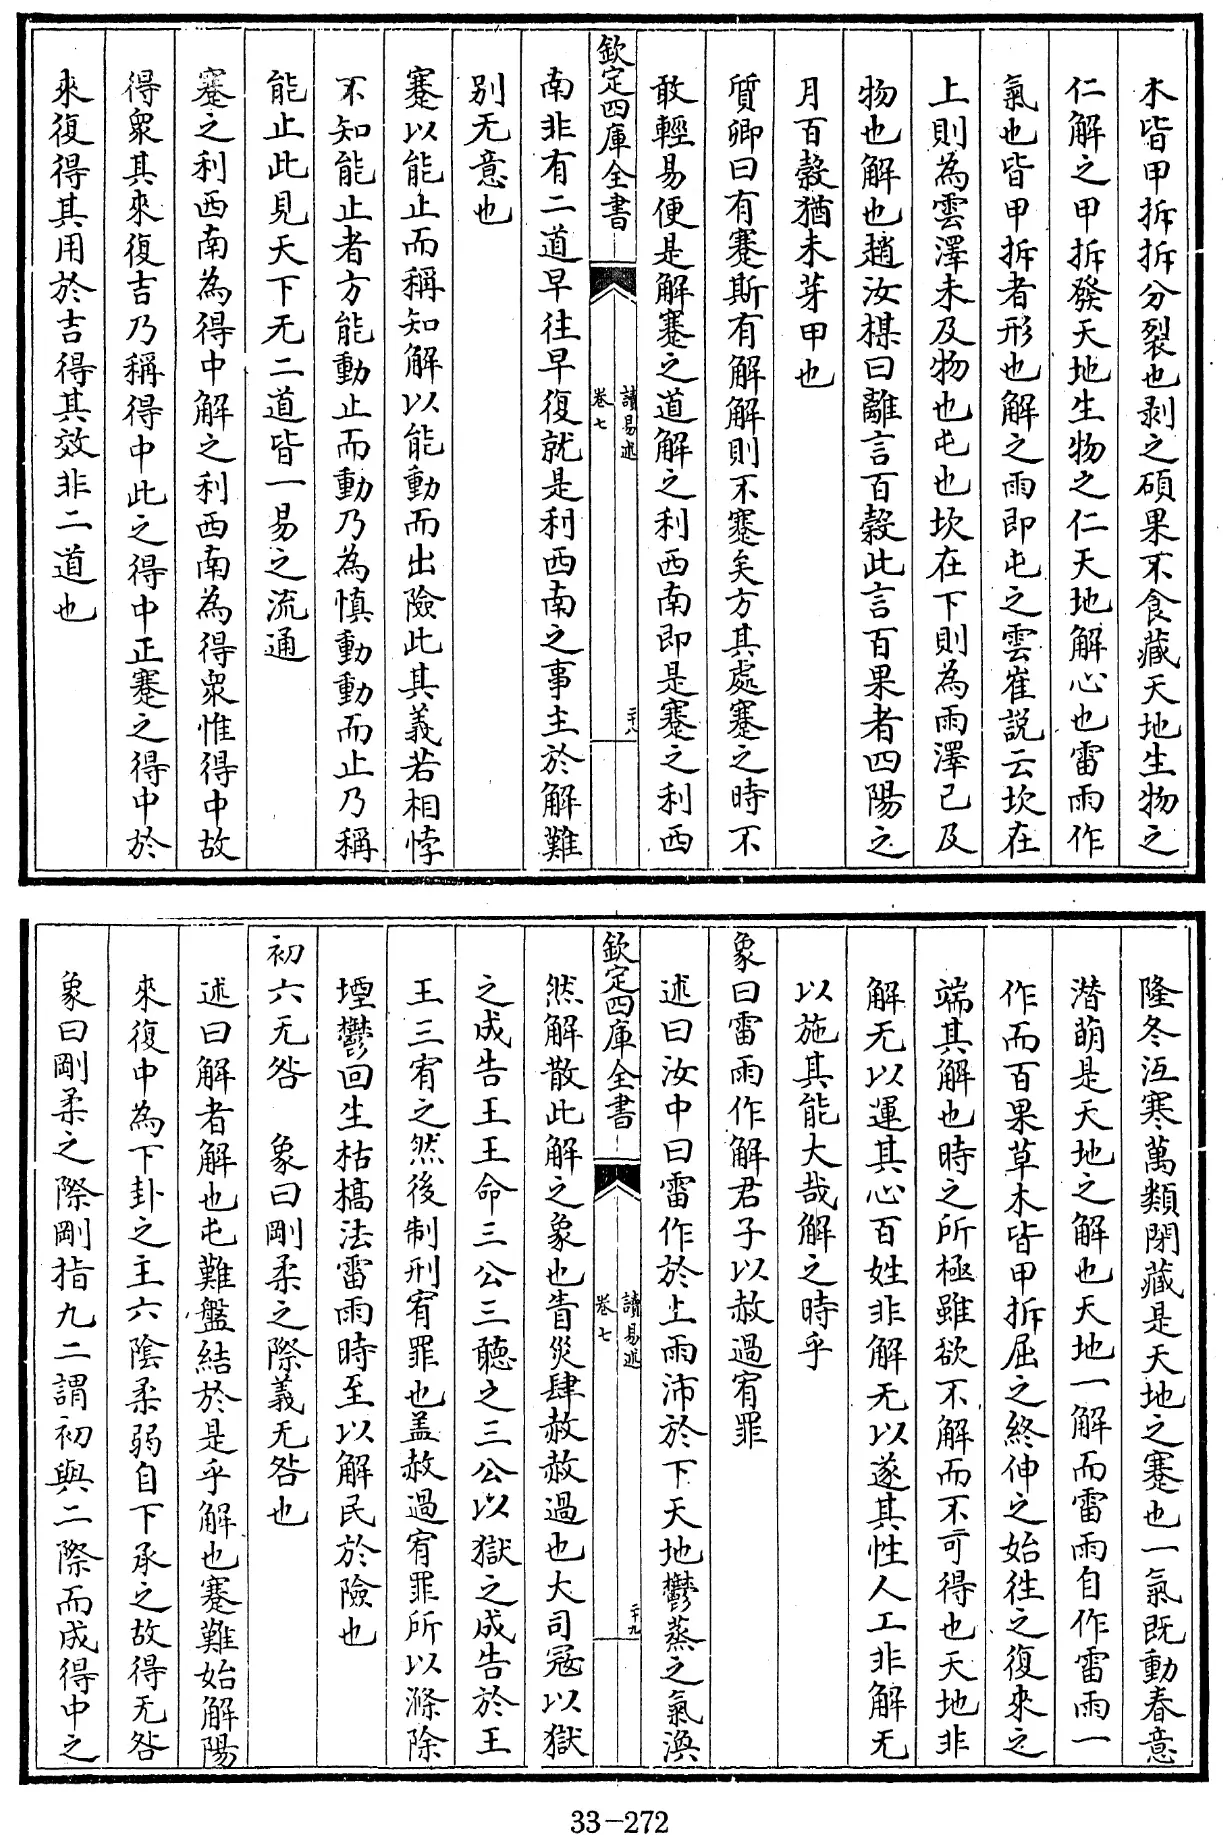 木皆甲拆拆分裂也剥之碩果不食藏天地生物之
仁解之甲拆發天地生物之仁天地解心也雷雨作
氣也皆甲拆者形也解之雨即屯之雲崔説云坎在
上則為雲澤未及物也屯也坎在下則為雨澤已及
物也解也趙汝楳曰離言百榖此言百果者四陽之
月百榖猶未芽甲也
質卿曰有蹇斯有解解則不蹇矣方其處蹇之時不
敢輕易便是解蹇之道解之利西南即是蹇之利西
欽定四庫全書
讀易述
卷七
二十八
南非有二道早往早復就是利西南之事主於解難
别无意也
蹇以能止而稱知解以能動而出險此其義若相悖
不知能止者方能動止而動乃為慎動動而止乃稱
能止此見天下无二道皆一易之流通
蹇之利西南為得中解之利西南為得衆惟得中故
得衆其來復吉乃稱得中此之得中正蹇之得中於
來復得其用於吉得其效非二道也
隆冬沍寒萬類閉藏是天地之蹇也一氣既動春意
潛萌是天地之解也天地一解而雷雨自作雷雨一
作而百果草木皆甲拆屈之終伸之始往之復來之
端其解也時之所極雖欲不解而不可得也天地非
解无以運其心百姓非解无以遂其性人工非解无
以施其能大哉解之時乎
象曰雷雨作解君子以赦過宥罪
述曰汝中曰雷作於上雨沛於下天地鬱蒸之氣渙
欽定四庫全書
讀易述
卷七
二十九
然解散此解之象也眚災肆赦赦過也大司寇以獄
之成告王王命三公三聽之三公以獄之成告於王
王三宥之然後制刑宥罪也盖赦過宥罪所以滌除
堙鬱回生枯槁法雷雨時至以解民於險也
初六无咎　象曰剛柔之際義无咎也
述曰解者解也屯難盤結於是乎解也蹇難始解陽
來復中為下卦之主六陰柔弱自下承之故得无咎
象曰剛柔之際剛指九二謂初與二際而成得中之
33-272